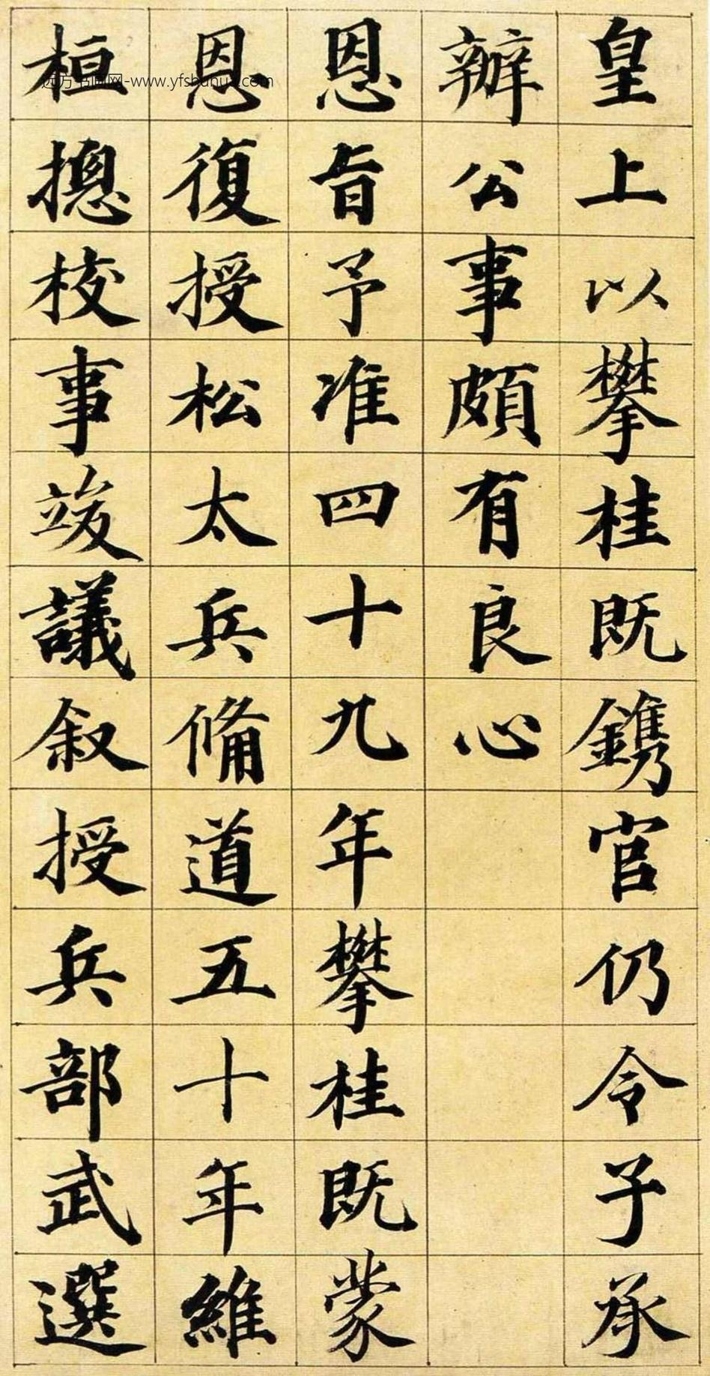 皇上以攀桂既鐫官仍令子承
辦公事頗有良心
恩旨予准四十九年攀桂既蒙
恩復授松太兵備道五十年維
桓摠校事竣議叙授兵部武選
www.yfshuhua.com